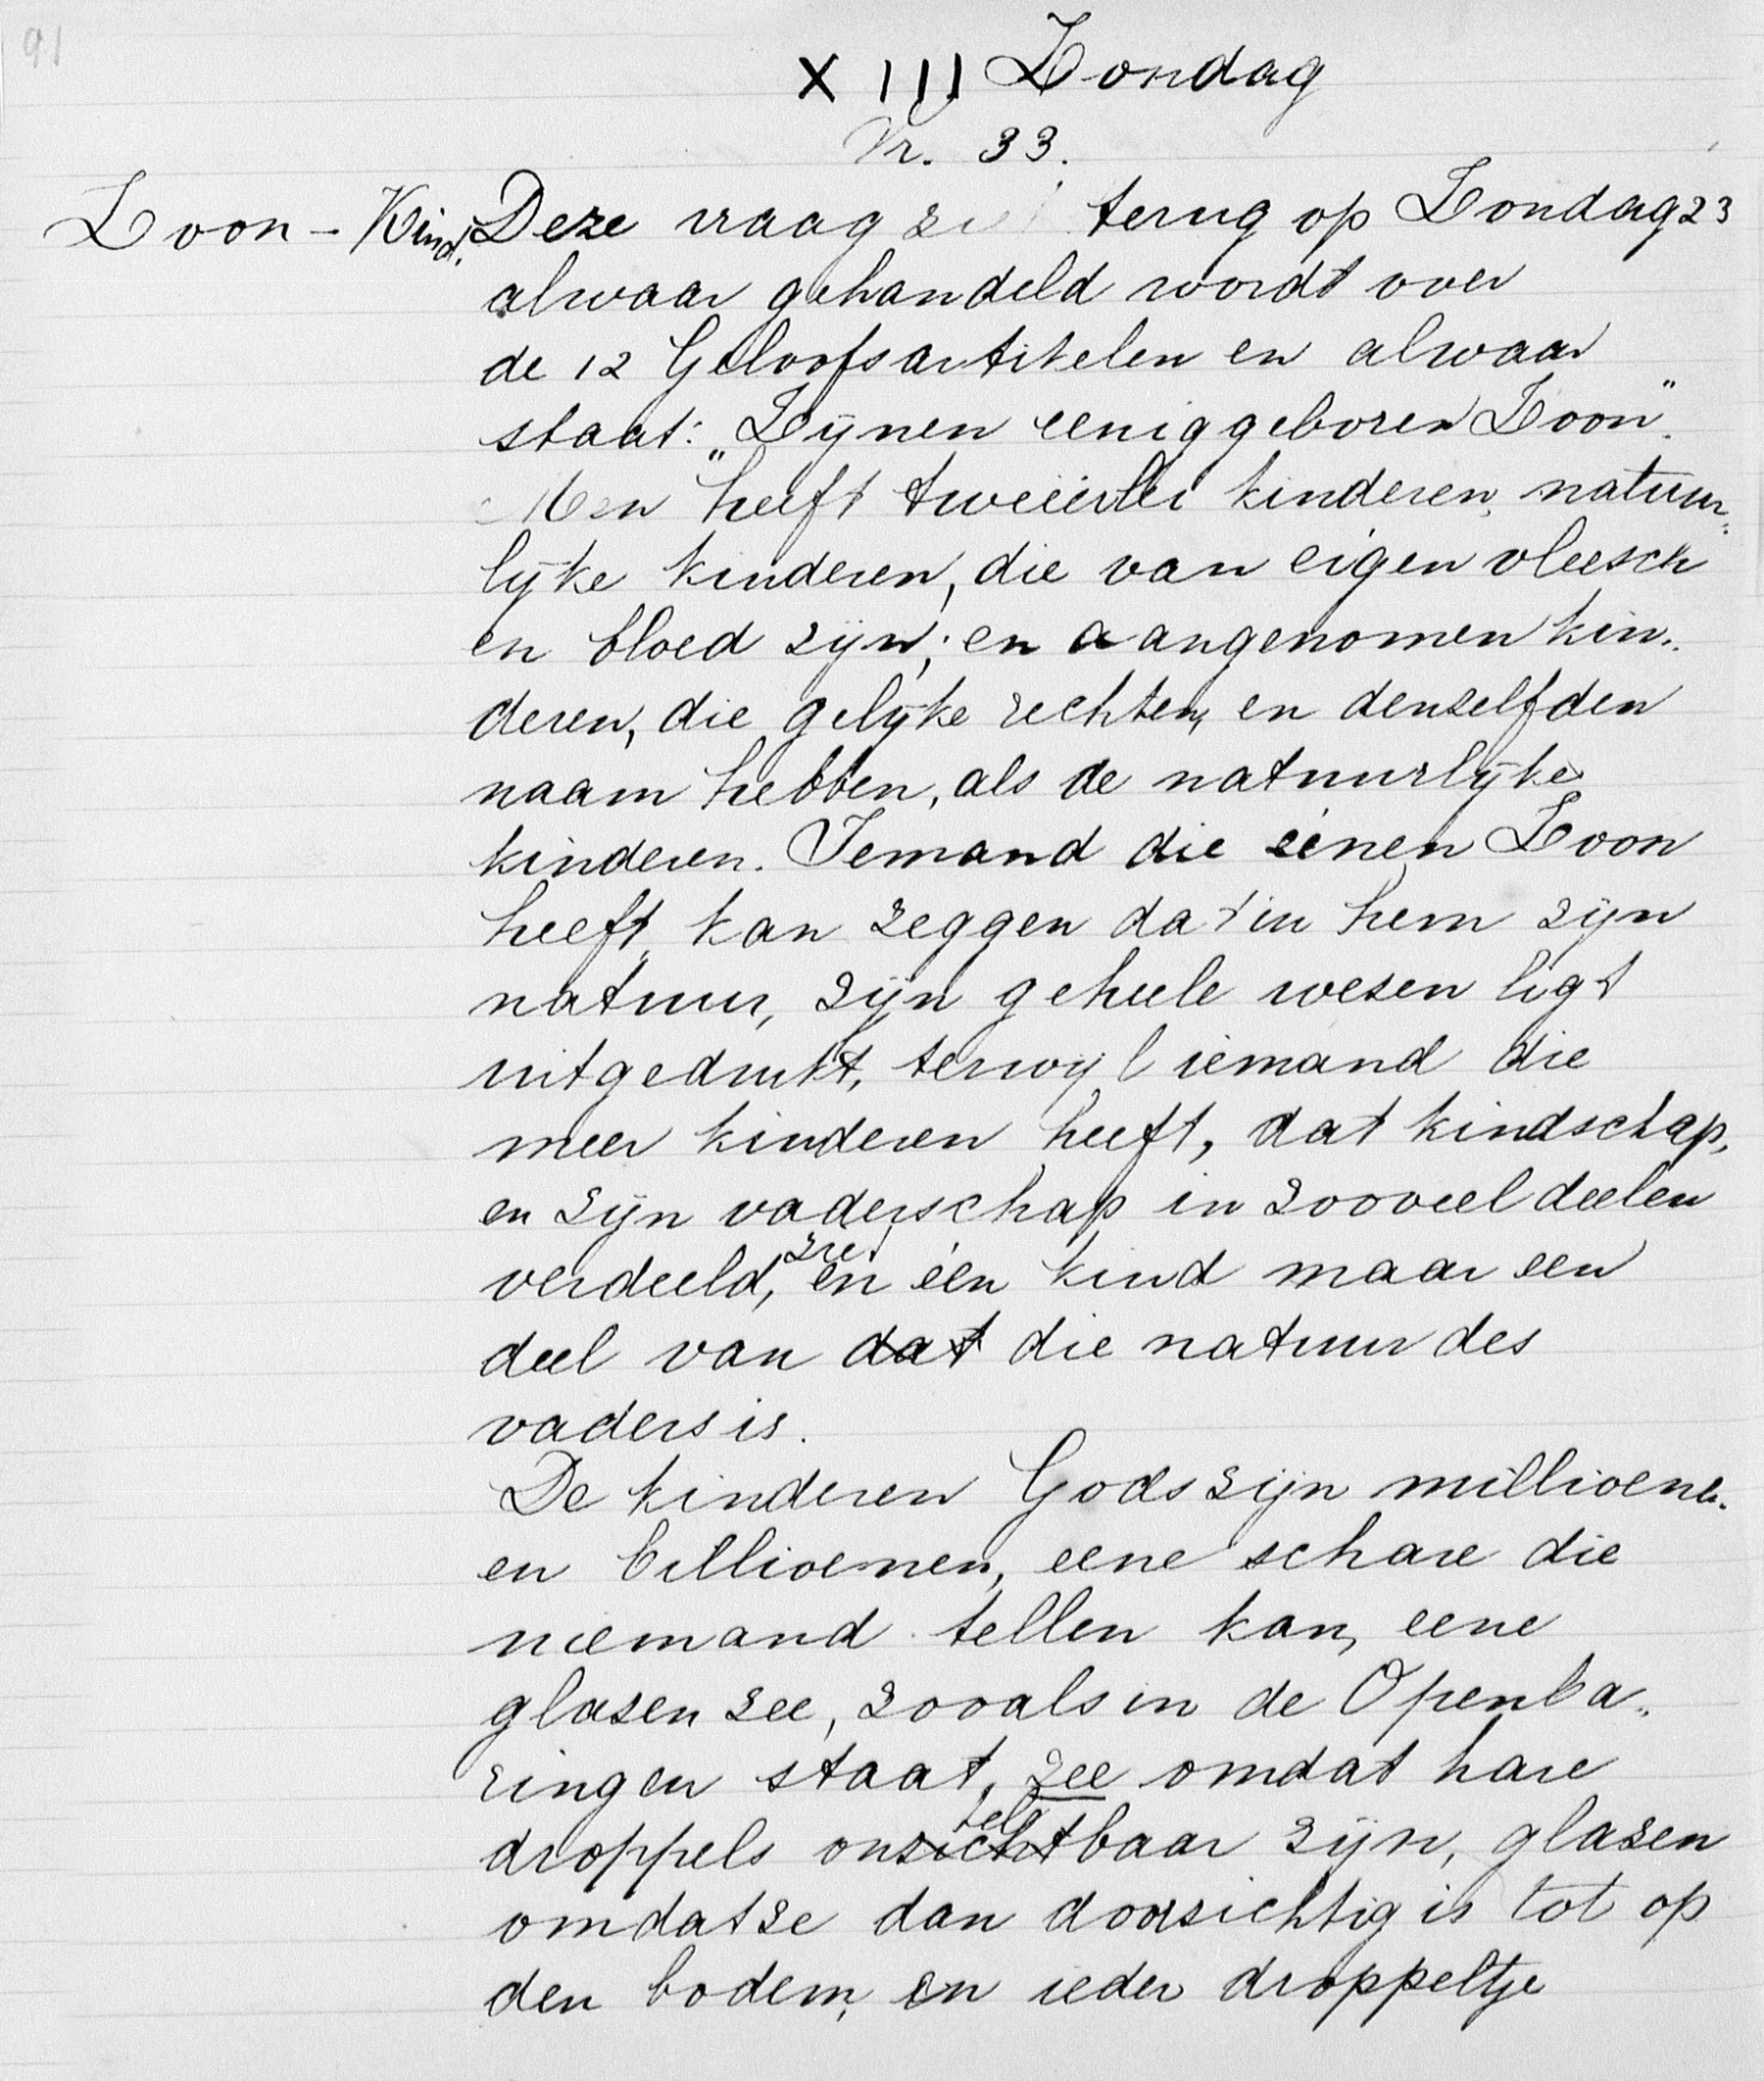 91
XIII Zondag
Vr. 33.
Zoon - Kind. Deze vraag ziet terug op Zondag 23
alwaar gehandeld wordt over
de 12 Geloofsartikelen en alwaar
staat: „Zijnen eeniggeboren Zoon".
Men heeft tweeërlei kinderen, natuur„
lijke kinderen, die van eigen vleesch
en bloed zijn; en aangenomen kin„
deren, die gelijke rechten, en denzelfden
naam hebben, als de natuurlijke
kinderen. Iemand die éénen Zoon
heeft, kan zeggen dat in hem zijn
natuur, zijn geheele wezen ligt
uitgedrukt, terwijl iemand die
meer kinderen heeft, dat kindschap,
en zijn vaderschap in zooveel deelen
verdeeld, ziet en één kind maar een
deel van dat die natuur des
vaders is.
De kinderen Gods zijn millioenen
en billioenen, eene schare die
niemand tellen kan, eene
glazen zee, zooals in de Openba„
ringen staat, zee omdat hare
tel
droppels onzichtbaar zijn, glazen
omdat ze dan doorzichtig is tot op
den bodem, en ieder droppeltje